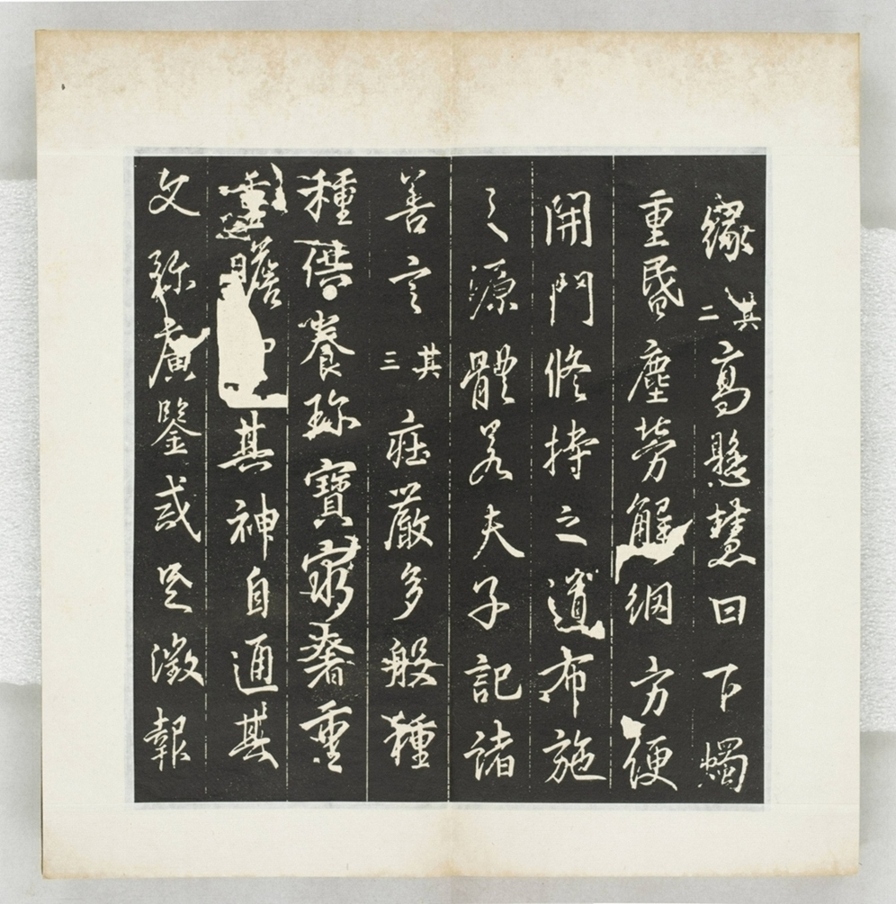 緣其二高懸慧日下燭
重昬塵勞解網方便
開門修持之道布施
之源體若夫子記諸
善言其三莊嚴多般種
種供養珍寶窮奢重
重瞻其神自通其
文弥廣鑒或足徵報